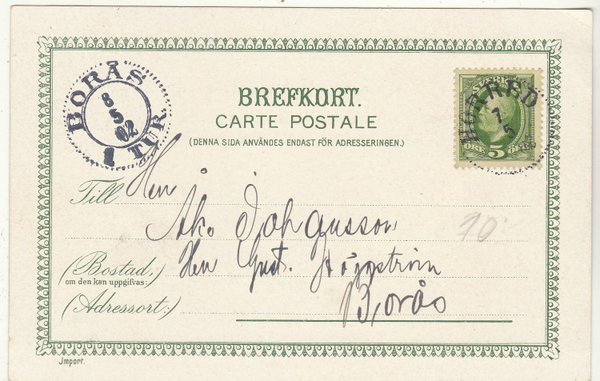 BORÅS
8
5
02
1 TUR
SVERIGE
HORRED
7
5
ÖRE 5
BREFKORT.
CARTE POSTALE
(DENNA SIDA ANVÄNDES ENDAST FÖR ADRESSERINGEN.)
Till Herr
Åk. Johansson
(Bostad,) Herr Gust. Högström
om den kan uppgifvas:
(Adressort:) Borås
10
Import.